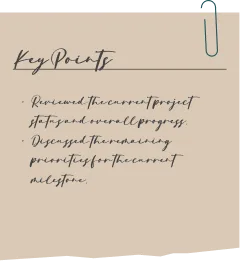 Key Points
· Reviewed the current project
status and overall progress.
· Discussed the remaining
priorities for the current
milestone.